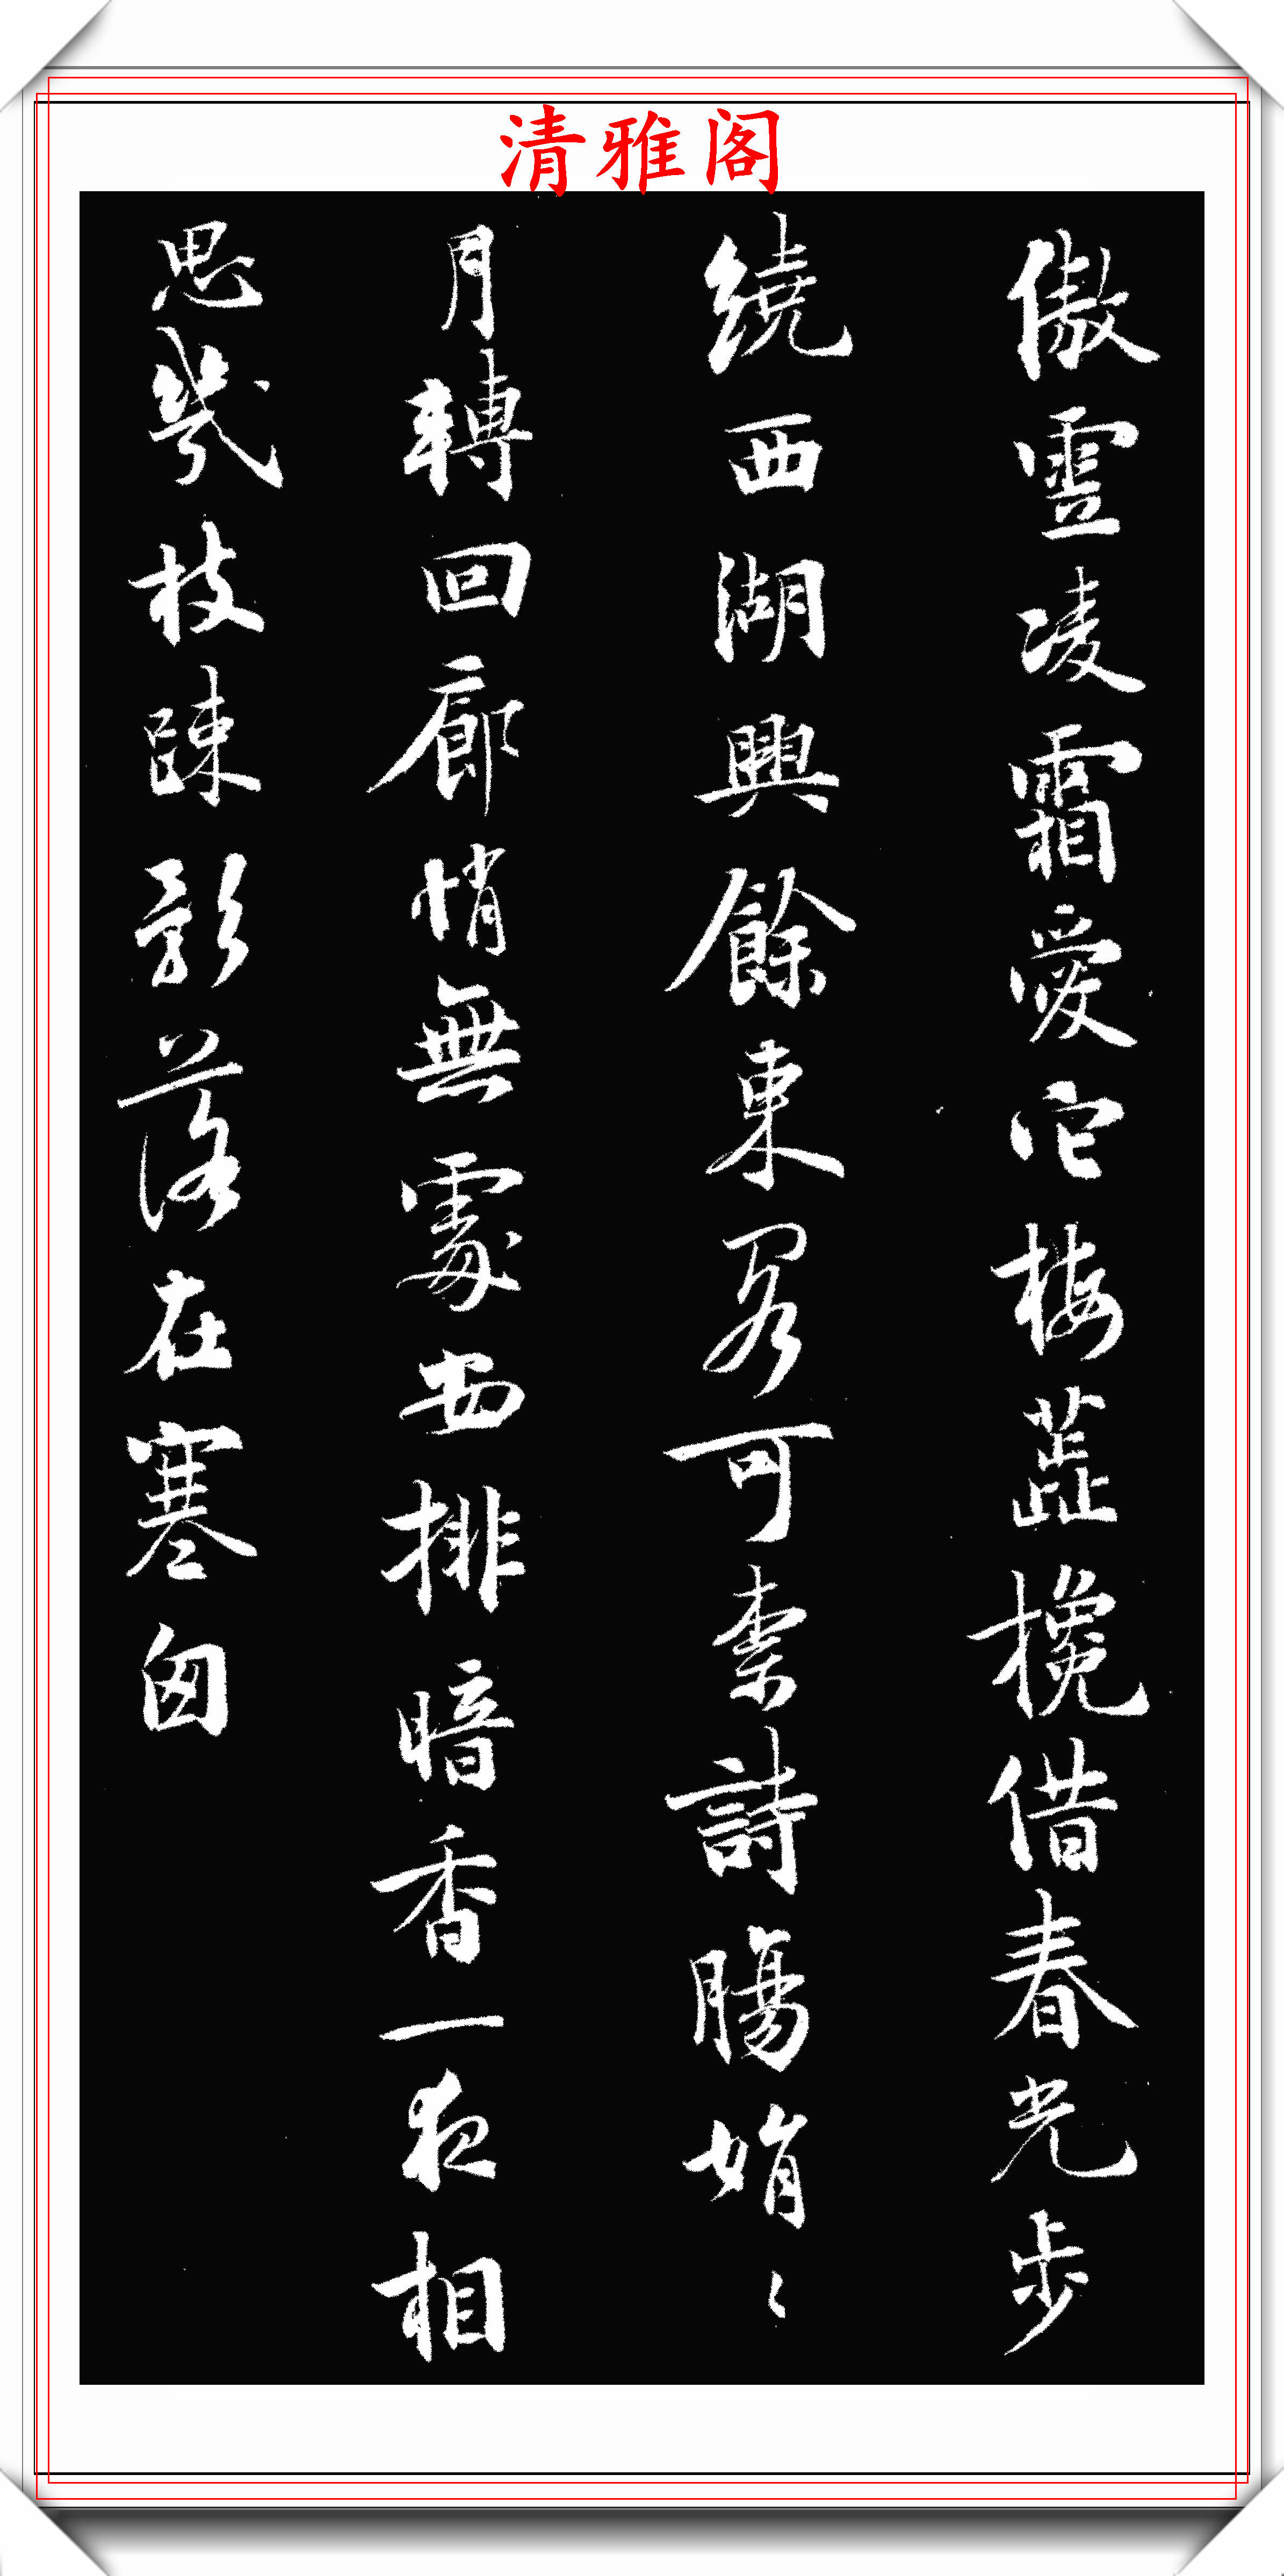 清雅阁
傲雪凌霜愛它梅蕋攙借春光步
繞西湖興餘東閣可柰詩腸娟〻
月轉回廊悄無處安排暗香一夜相
思幾枝踈影落在寒囱